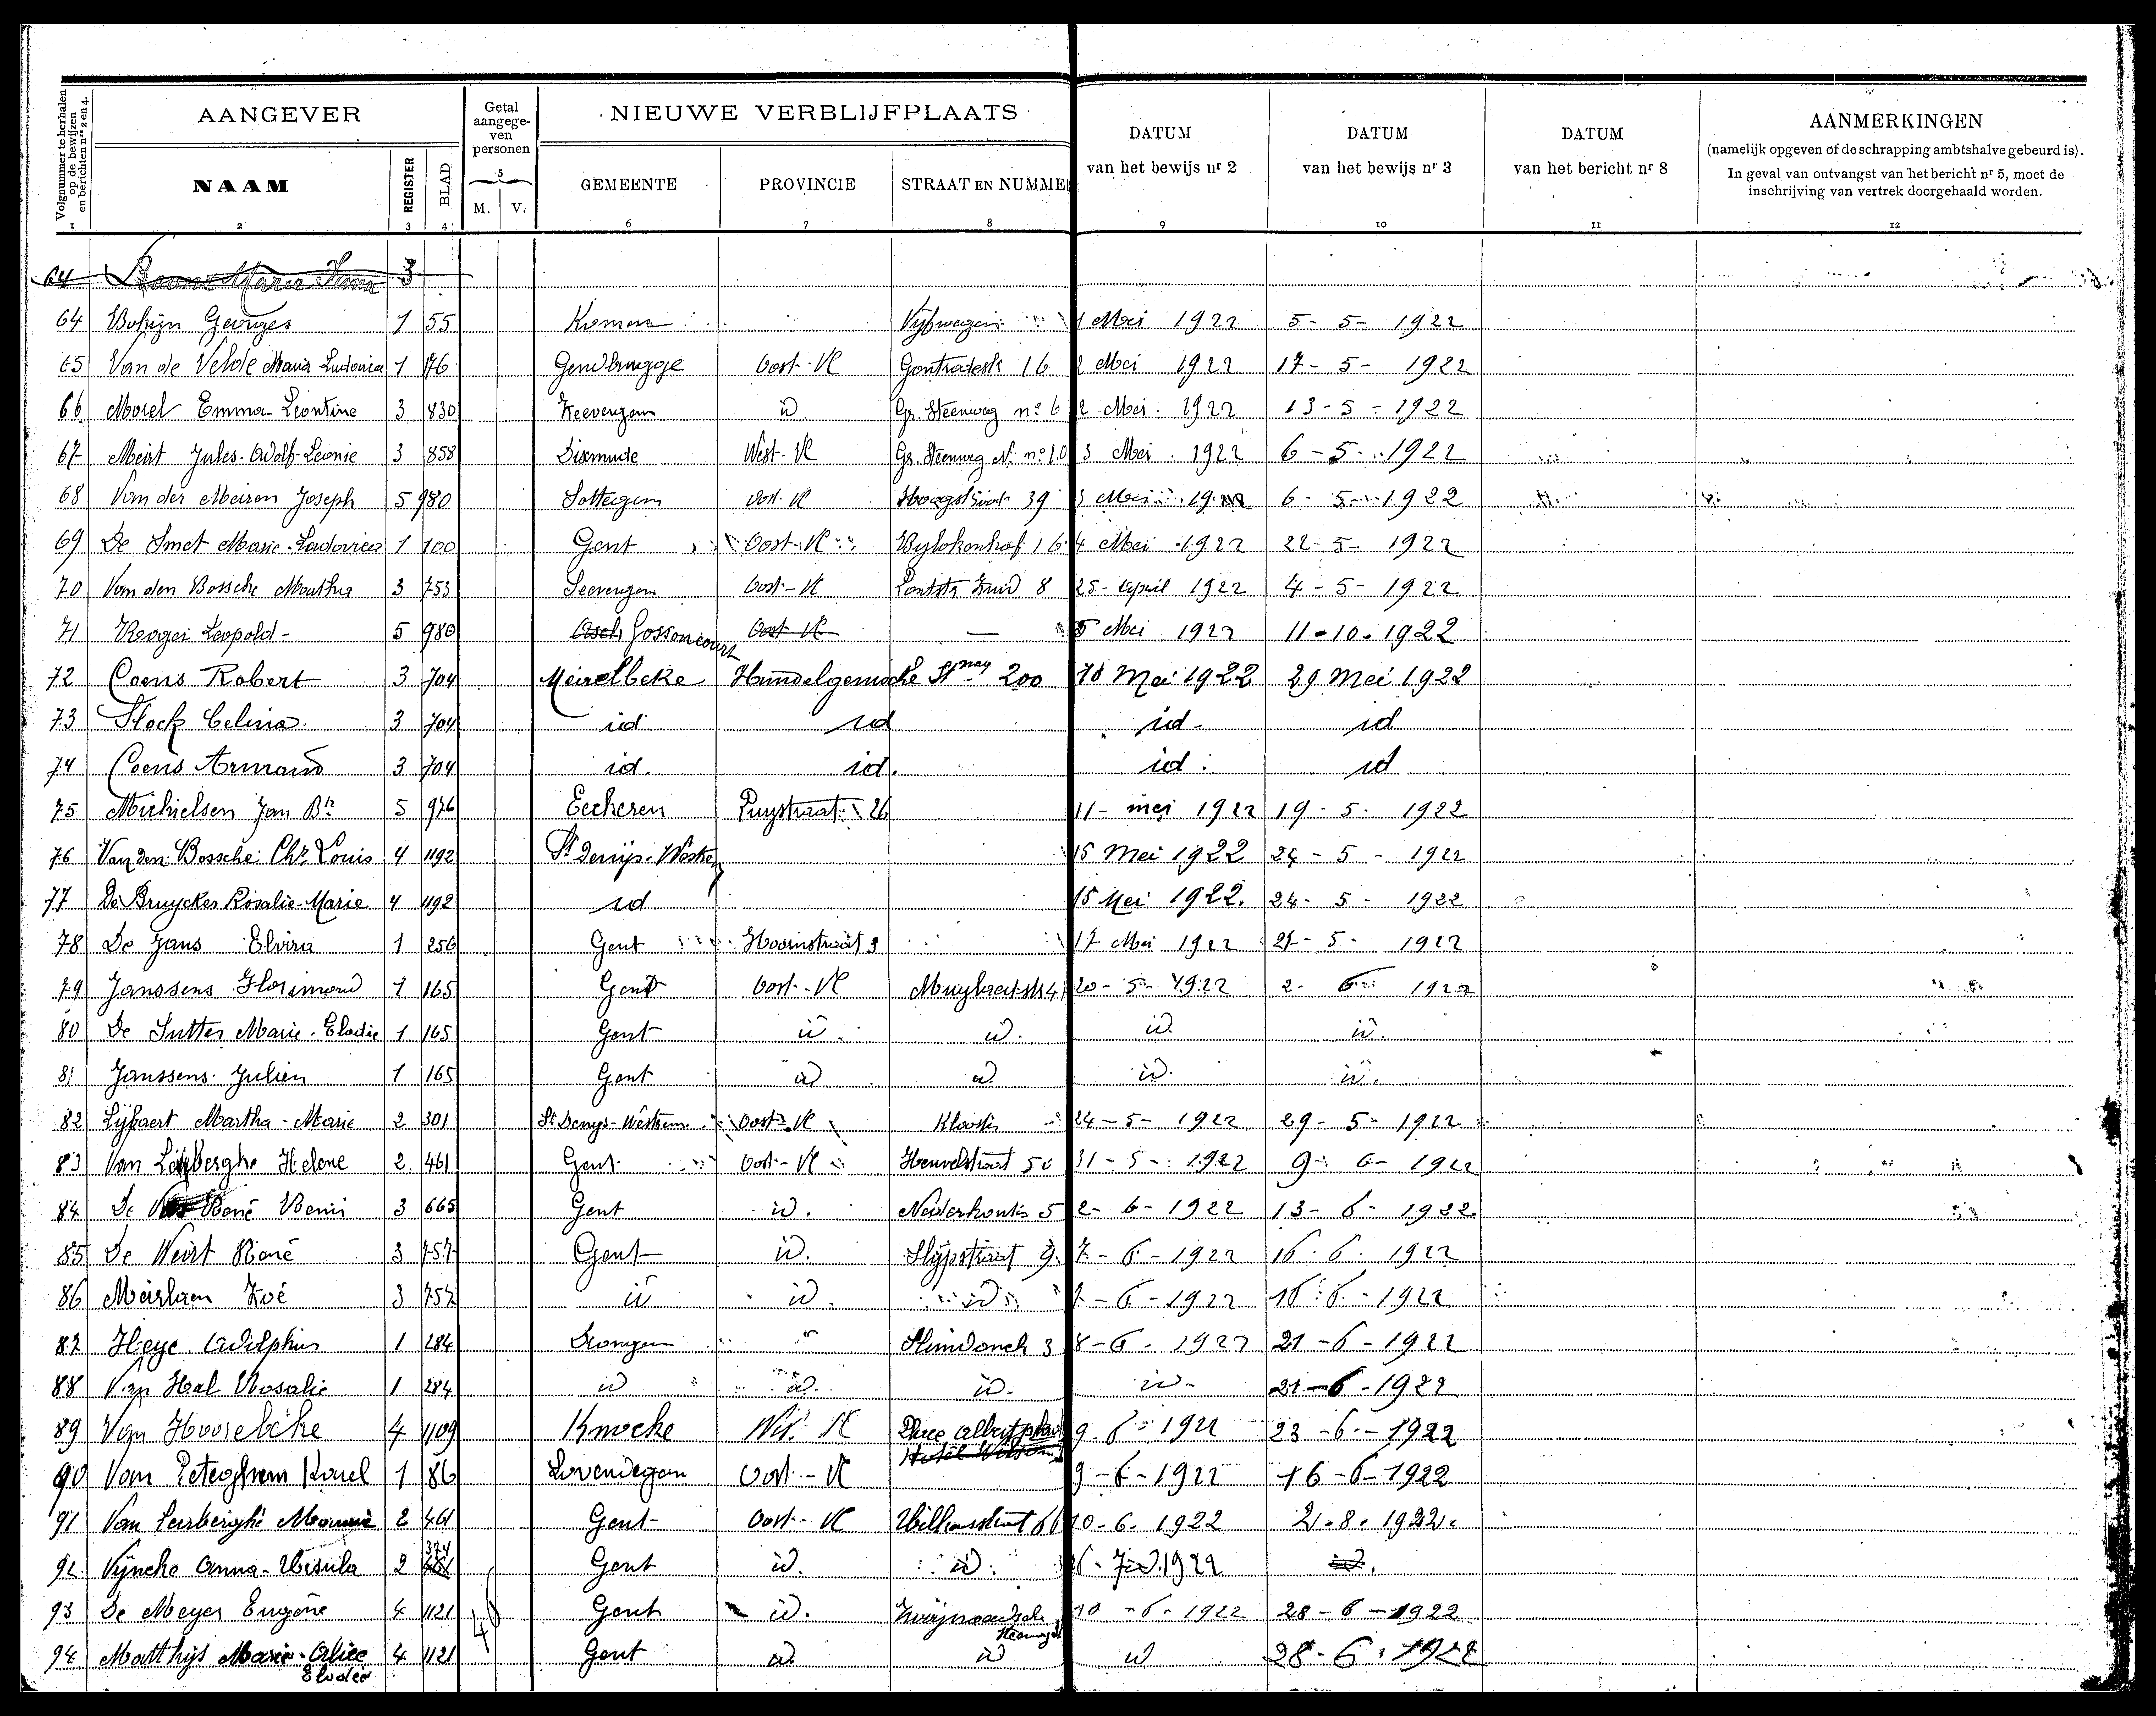 Volgnummer te herhalen op de bewijzen en berichten nrs 2 en 4.
AANGEVER
Getal aangegeven personen
NIEUWE VERBLIJFPLAATS
DATUM van het bewijs nr 2
DATUM van het bewijs nr 3
DATUM van het bericht nr 8
AANMERKINGEN
(namelijk opgeven of de schrapping ambtshalve gebeurd is).
In geval van ontvangst van het bericht nr 5, moet de
inschrijving van vertrek doorgehaald worden.
NAAM REGISTER BLAD M. V. GEMEENTE PROVINCIE STRAAT EN NUMME
1 2 3 4 5 6 7 8 9 10 11 12
64 Marie 3
64 Georges 1 55 Komen 1 Mei 1922 5-5-1922
65 Van de Velde Maria Ludovica 1 176 Gendbrugge Oost-Vl 16 2 Mei 1922 17-5-1922
66 Morel Emma Leontine 3 830 Zeevergem id Gr. Steenweg no 6 2 Mei 1922 13-5-1922
67 Meirt Jules-Adolf-Leonie 3 858 Dixmude West-Vl Gr. Steenweg N. no 10 3 Mei 1922 6-5-1922
68 Van der Meiren Joseph 5 980 Sottegem Oost-Vl Hoogstraat 39 3 Mei 1922 6-5-1922
69 De Smet Marie-Ludovica 1 100 Gent Oost-Vl Bylokenhof 16 4 Mei 1922 22-5-1922
70 Van den Bossche Martha 3 753 Seevergem Oost-Vl Zuid 8 25-April 1922 4-5-1922
71 Leopold 5 980 Asch Gossoncourt Oost-Vl — 5 Mei 1922 11-10-1922
72 Coens Robert 3 704 Meirelbeke Hundelgemsche Stnweg 200 18 Mei 1922 29 Mei 1922
73 Stock Celina 3 704 id id id id
74 Coens Armand 3 704 id. id. id. id
75 Michielsen Jan Bte 5 976 Eeckeren Puystraat 26 11-mei 1922 19-5-1922
76 Van den Bossche Ch. Louis 4 1192 St Denijs-Westrem 15 Mei 1922 24-5-1922
77 De Bruycker Rosalie-Marie 4 1192 id 15 Mei 1922. 24-5-1922
78 De Jans Elvira 1 256 Gent Hoornstraat 3 17 Mei 1922 27-5-1922
79 Janssens Florimond 1 165 Gent Oost-Vl 20-5-1922 2-6-1922
80 De Sutter Marie-Elodie 1 165 Gent id. id. id. id.
81 Janssens Julien 1 165 Gent id id id. id.
82 Lybaert Martha-Marie 2 301 St Denys-Westrem Oost-Vl Klooster 24-5-1922 29-5-1922
83 Van Helene 2 461 Gent Oost-Vl Heuvelstraat 50 31-5-1922 9-6-1922
84 De René Remi 3 665 Gent id. 5 2-6-1922 13-6-1922
85 De Weirt René 3 757 Gent id. Slypstraat 9 7-6-1922 16-6-1922
86 Meirlaen Zoé 3 757 id id. id 7-6-1922 16-6-1922
87 Heye Adolphus 1 284 Drongen " 3 8-6-1922 21-6-1922
88 Van Hal Rosalie 1 284 id id. id. id- 21-6-1922
89 Van Hoorebeke 4 1109 Knocke West Vl 9-6-1922 23-6-1922
90 Van Peteghem Karel 1 86 Lovendegem Oost-Vl 9-6-1922 16-6-1922
91 Van Lerberghe 2 461 Gent Oost-Vl 66 10-6-1922 2.8.1922
374
92 Vyncke Anna-Ursula 2 461 Gent id. id. 1922 id.
93 De Meyer Eugène 4 1121 Gent id. Zwijnaardsche Steenweg 10-6-1922 28-6-1922
94 Matthijs Marie-Alice 4 1121 46 Gent id. id id 28-6-1922
Elodie